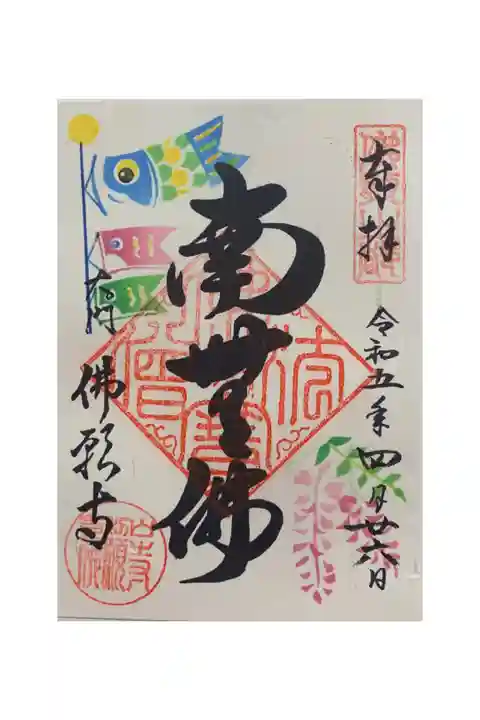 奉拝
令和五年四月廿六日
南無佛
佛願寺